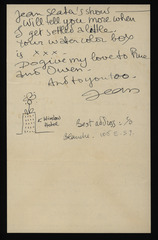 Jean Slata's show
Will tell you more when
I get settled a little.
Your watercolor box
is x x x.
Do give my love to
and Owen.
And to you too.
Jean
Window
Best address is